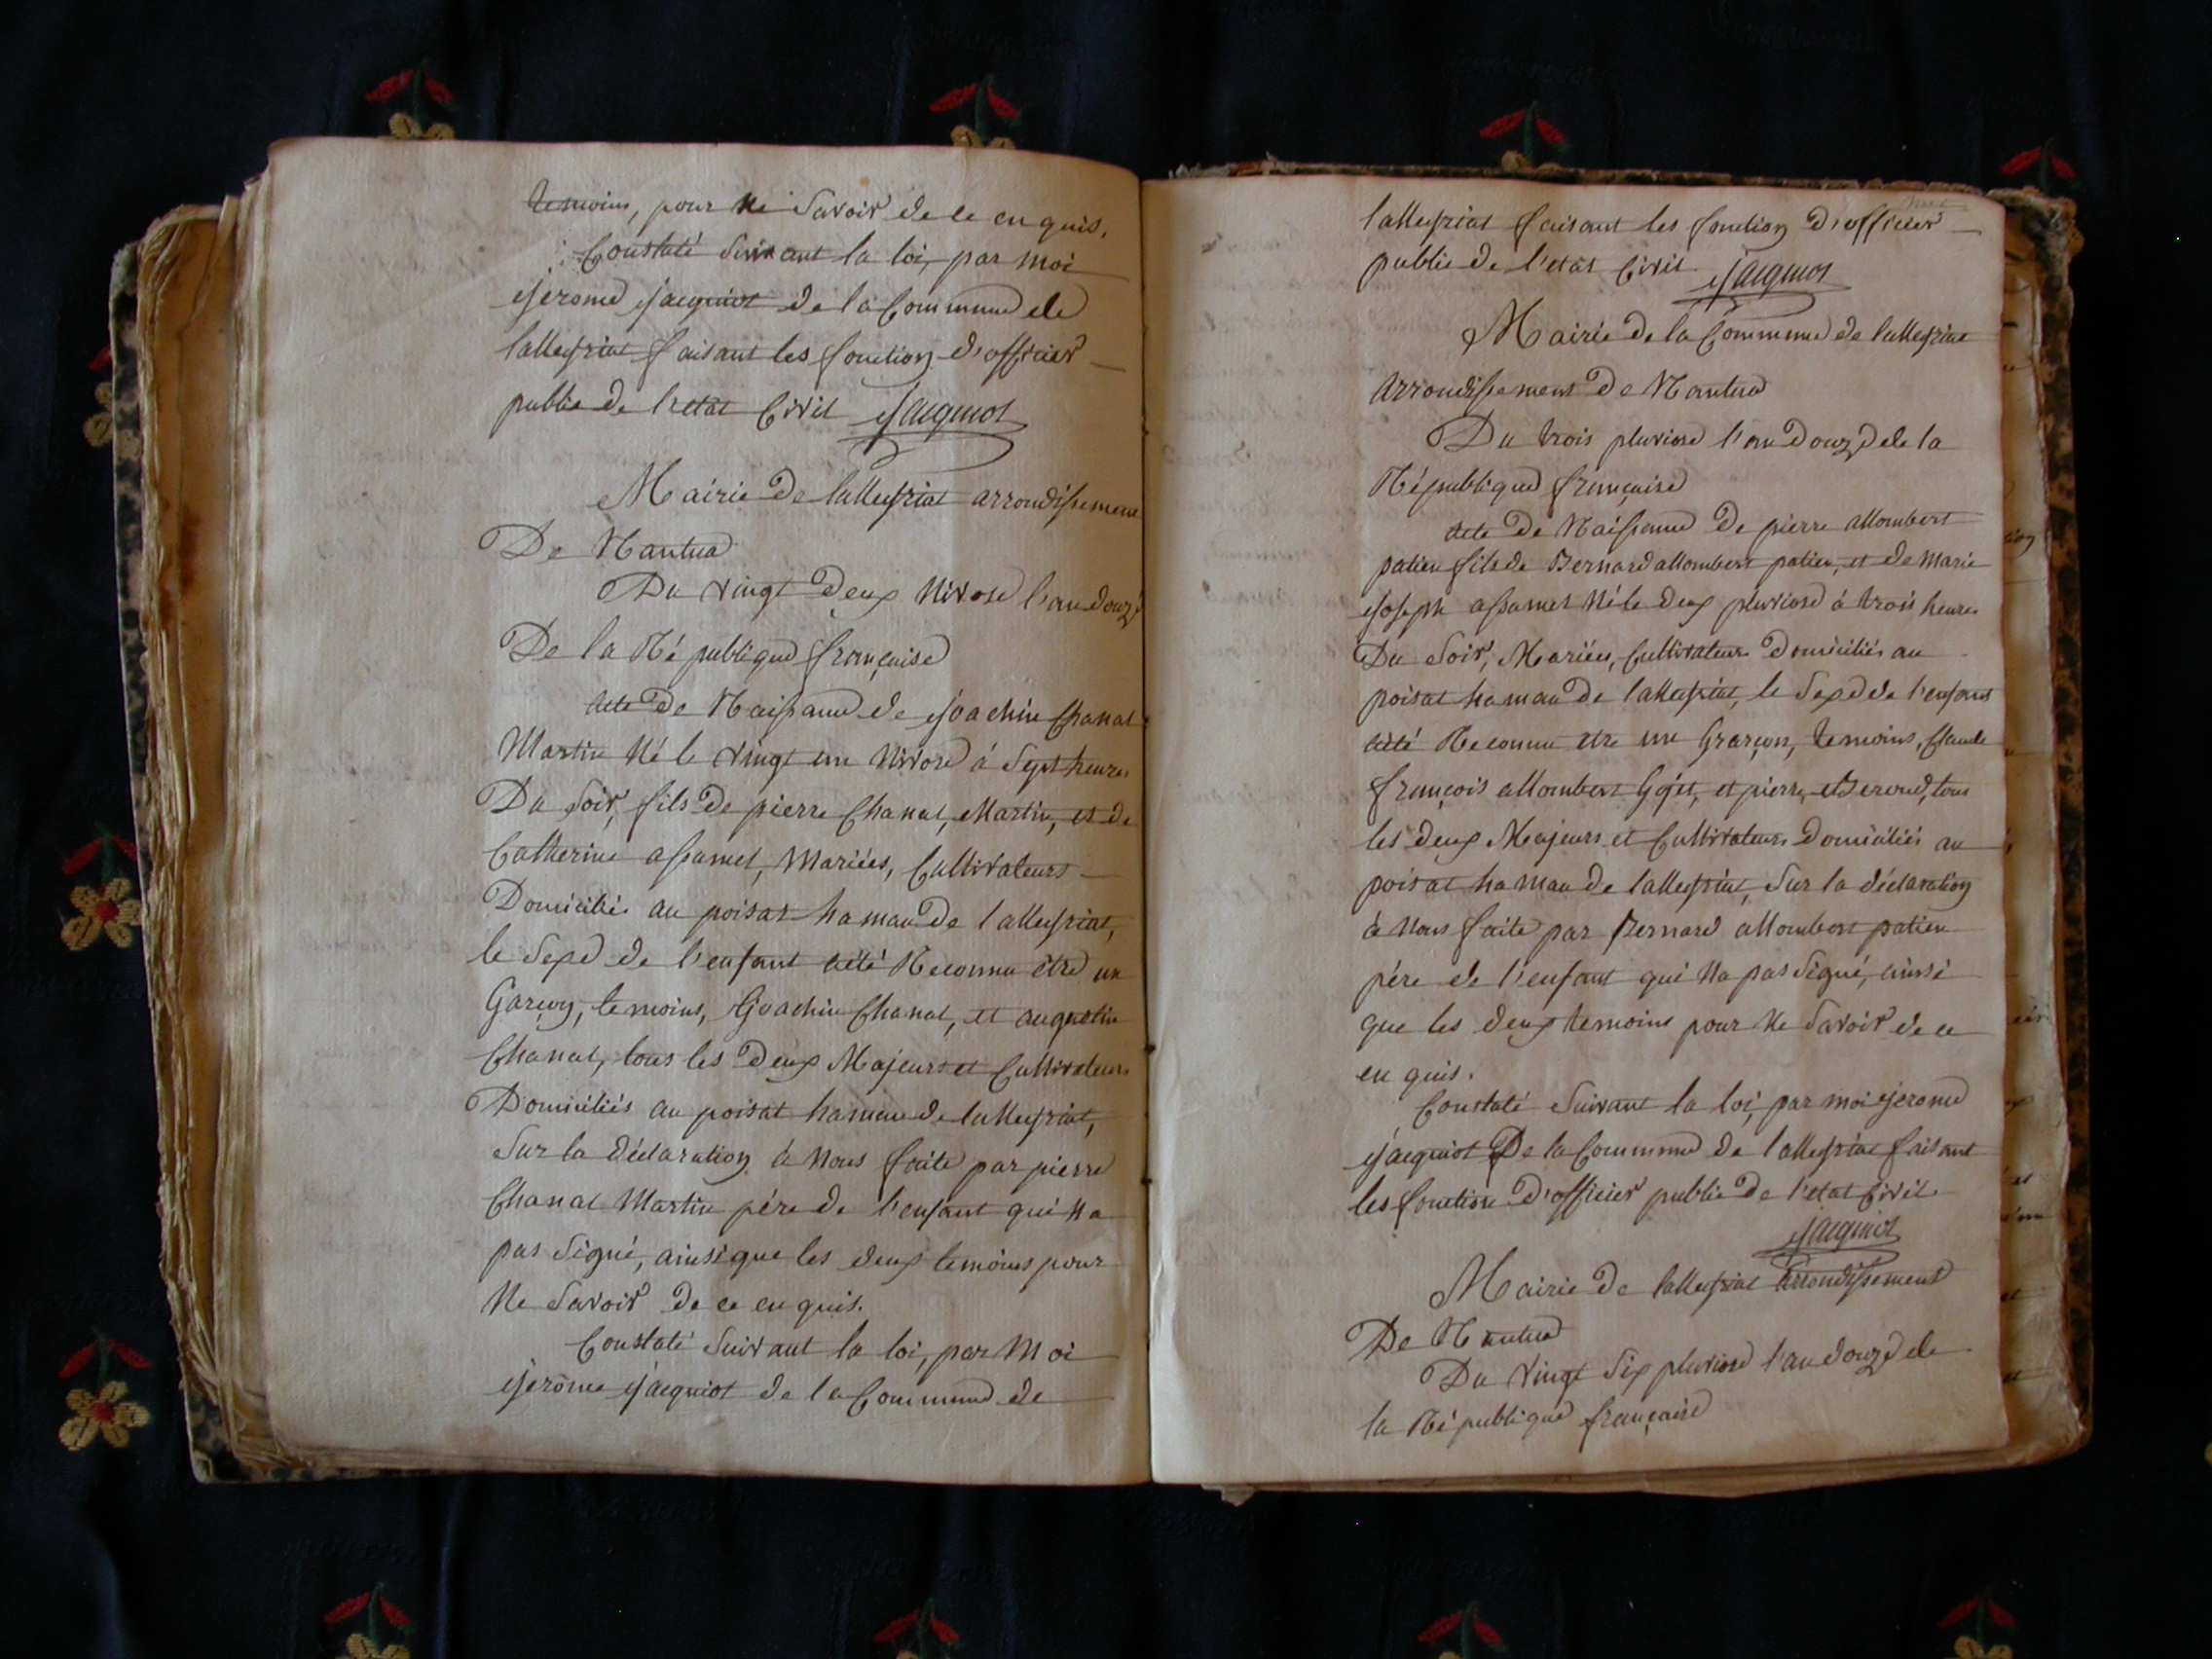 temoins, pour ne savoir de ce en quis.
Constaté suivant la loi, par moi
jerome jacquiot de la Commune de
lalleyriat faisant les fonction d'officier
public de l'etat Civil Jacquiot
Mairie de lalleyriat arrondissement
De Nantua
Du vingt deux Nivose l'an douze
De la République française
acte De Naissance de joachin Chanal
Martin Né le vingt un Nivose à Sept heures
Du soir, fils De pierre Chanal, Martin, et de
Catherine assamet, Mariées, Cultivateurs
Domiciliés au poisat hamau De lalleyriat,
le sexe de l'enfant aété Reconnu être un
Garçon, temoins, Joachin Chanal, et augustin
Chanal, tous les Deux Majeurs et Cultivateurs
Domiciliés au poisat hamau de lalleyriat,
Sur la déclaration à Nous faite par pierre
Chanal Martin pére De l'enfant qui Na
pas Signé, ainsi que les deux temoins pour
Ne savoir de ce en quis.
Constaté Suivant la loi, par Moi
jerôme jacquiot de la Commune de
lalleyriat faisant les fonction d'officier
public de l'etat Civil Jacquiot
Mairie de la Commune de lalleyriat
arrondissement De Nantua
Du trois pluviose l'an Douze de la
République française
acte De Naissance De pierre allombert
patien fils de Bernard allombert patien, et de Marie
joseph assamet Né le deux pluviose à trois heures
Du Soir, Mariées, Cultivateurs Domiciliés au
poisat hamau De lalleyriat, le Sexe de l'enfant
aété Reconnu etre un Grarçon, temoins, Claude
françois allombert Gojet, et pierre, Beroud, tous
les deux Majeurs et Cultivateurs Domiciliés au
poisat hamau de lalleyriat, Sur la déclaration
à Nous faite par Bernard allombert patien
pére de l'enfant qui Na pas Signé, ainsi
que les deux temoins pour Ne Savoir de ce
en quis.
Constaté Suivant la loi, par moi jerome
jacquiot De la Commune de lalleyriat faisant
les fonction D'officier public De l'etat Civil
Jacquiot
Mairie de lalleyriat arrondissement
De Nantua
Du vingt Six pluviose l'an douze de
la République française